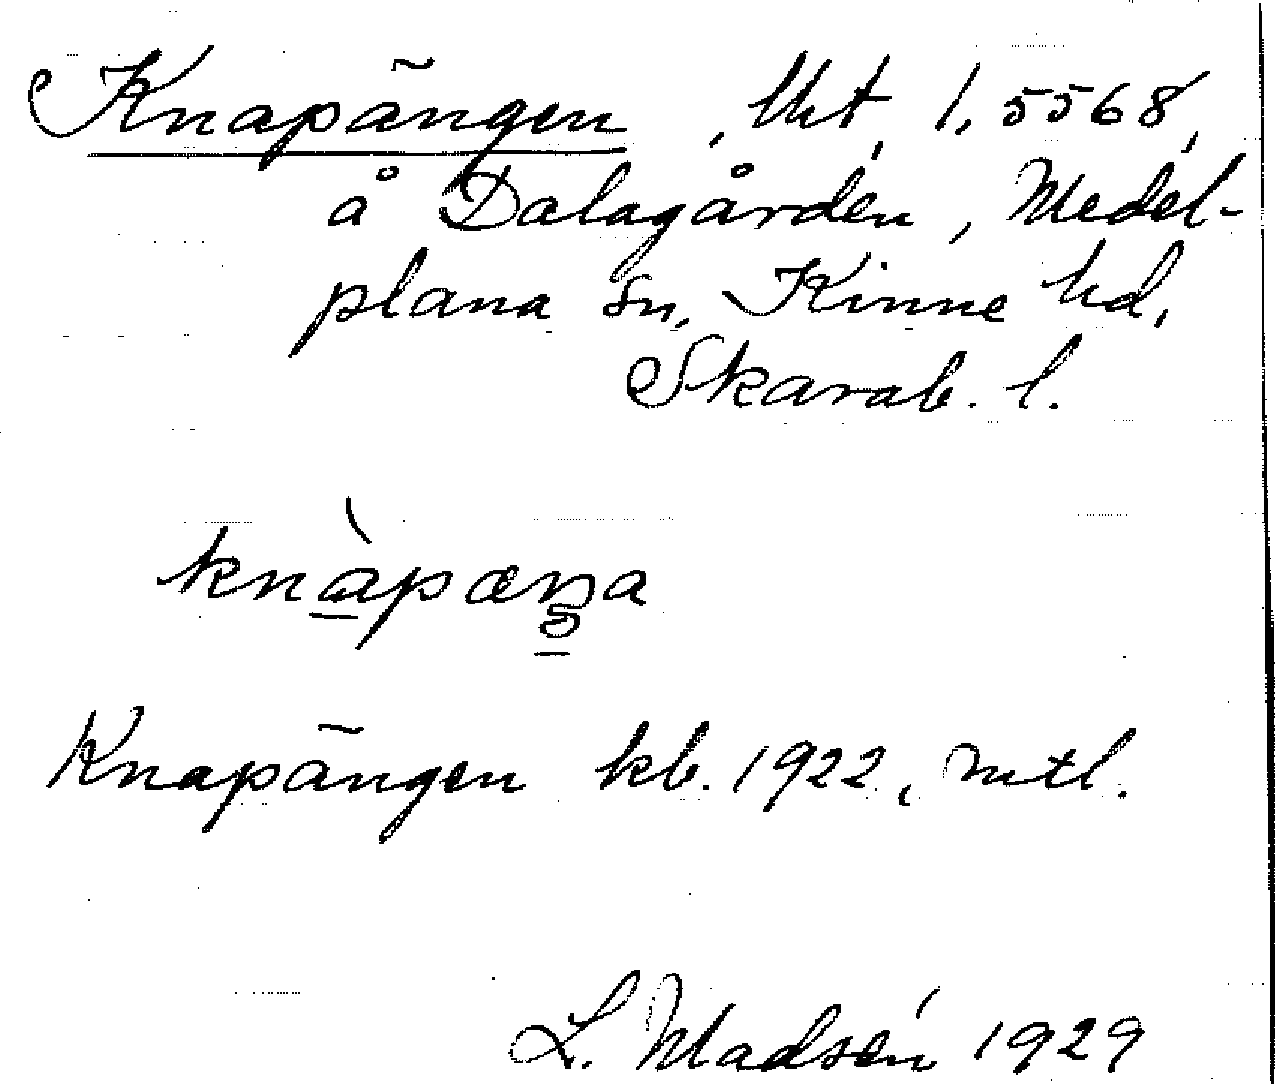 Knapängen, lht, 1.5568,
å Dalagården, Medel-
plana sn, Kinne hd,
Skarab. l.
knàpæŋa
Knapängen kb. 1922, mtl.
L. Madsén 1929